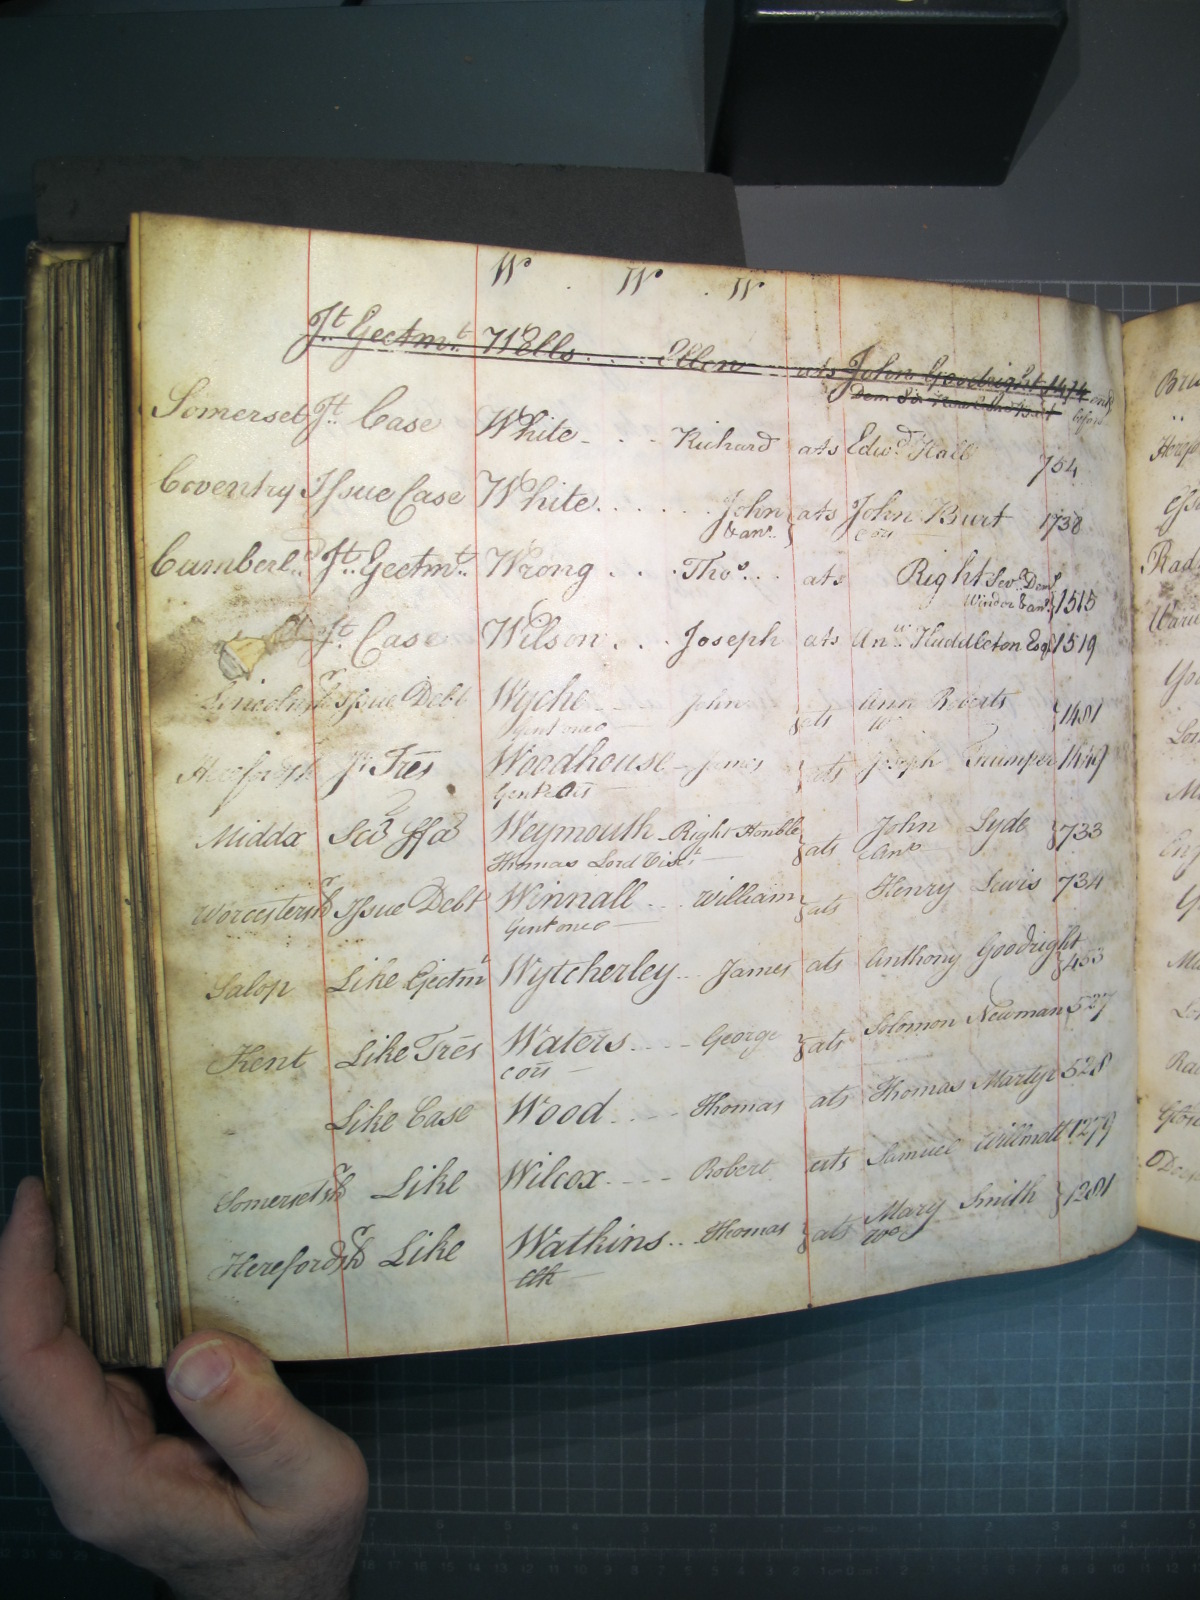 W W W
Jt. Gectmt. Wells ... Ellen ats John Goodright 1474 ent
Dem Sir before
Somerset Jt. Case White - . . - Richard ats Edwd. Hall 754
Coventry Issue Case White . . . . . . . John ats John Burt 1738
& anr. cort
Cumberld. Jt. Gectmt. Wrong . . . Thos. . . ats Right Sevl. Demes
Windor & anr. 1515
Jt. Case Wilson . . . Joseph ats Ann Huddleton Esq 1519
Lincolnshr Issue Debt Wyche John ats Ann Roberts 1481
Gent oneo w
Herefordsh Jt. Tres Woodhouse - James ats Joseph Trumper 1449
Gent
Middx Sci ffa Weymouth Right Honble ats John Lyde 733
Thomas Lord Visct Ans
Worcestersh Issue Debt Winnall William ats Henry Lewis 734
Gent oneo
Salop Like Ejectmt Wytcherley James ats Anthony Goodright 455
Kent Like Tres Waters George ats Solomon Newman 527
cors
Like Case Wood Thomas ats Thomas Martyr 528
Somersetsh Like Wilcox Robert ats Samuel Willmott 1279
Herefordsh Like Watkins Thomas ats Mary Smith 1281
Clk wo